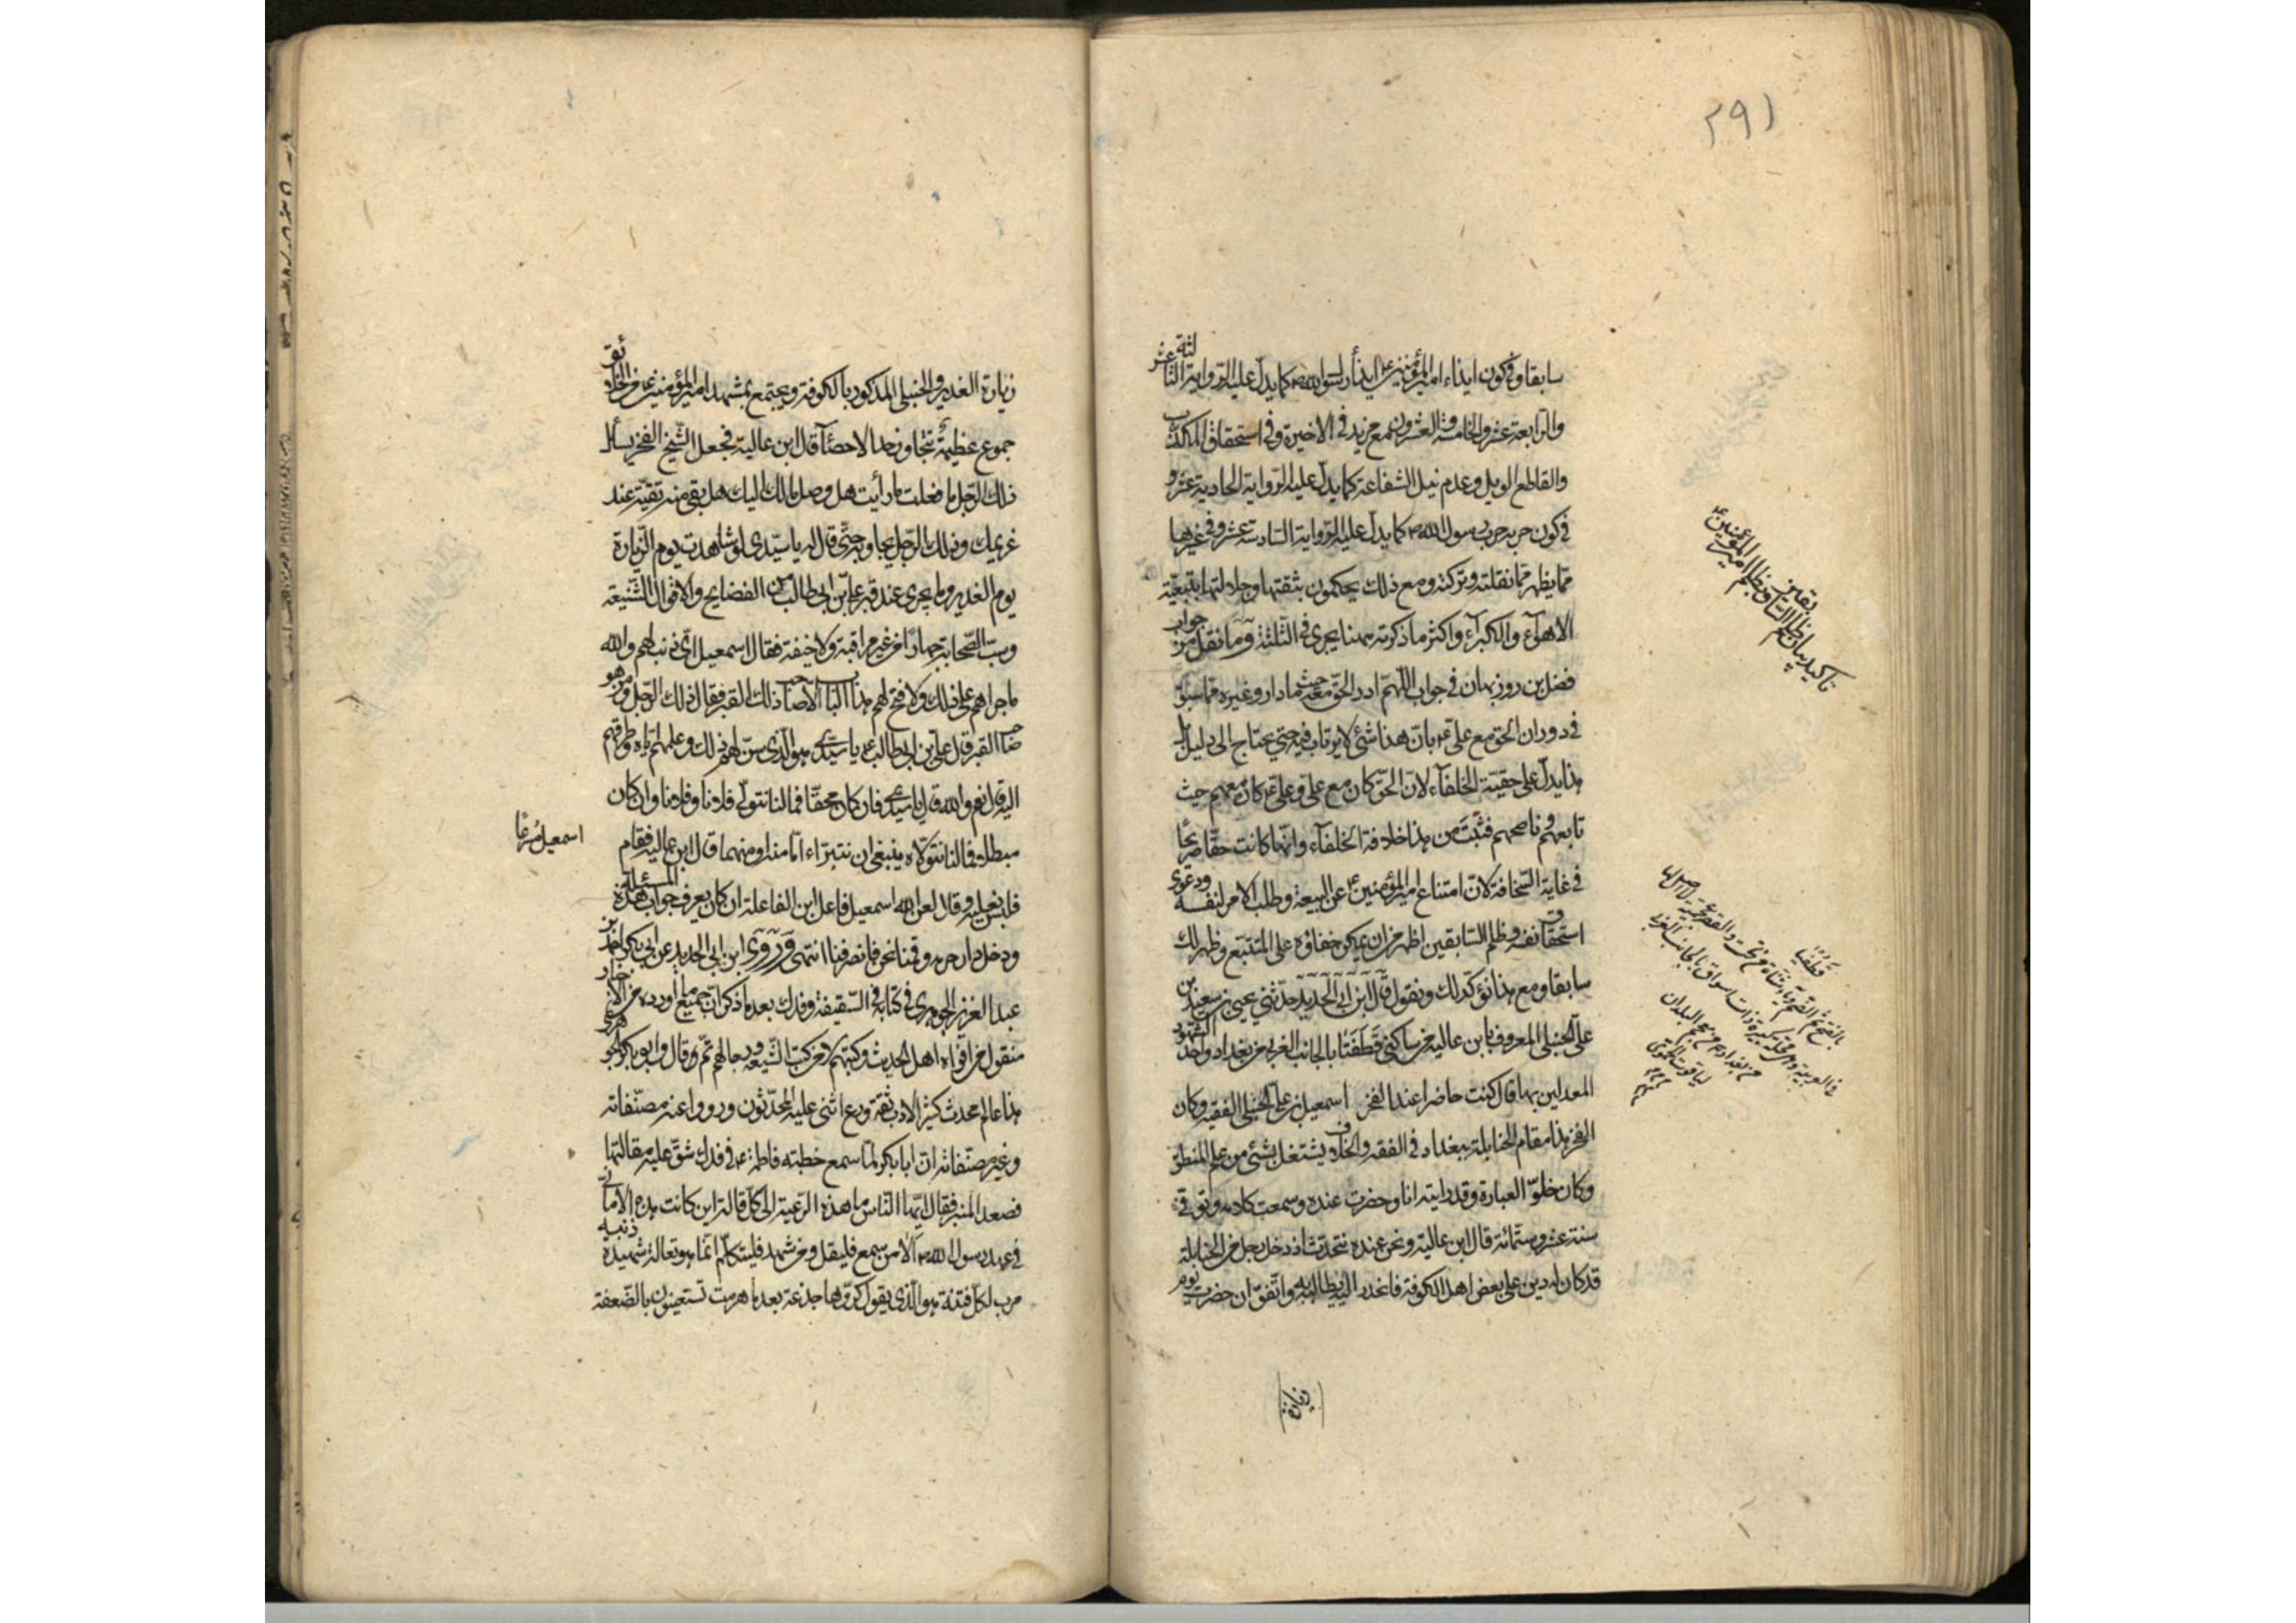 ٢٩١
سابقا وفي كون ايذاء امير المؤمنين ع ايذاء رسول الله ص كما يدل عليه الرواية الثالثة عشر
والرابعة عشر والخامسة والعشرون مع مزيد في الاخيرة وفي استحقاق المكذب
والقاطع الويل وعدم نيل الشفاعة كما يدل عليه الرواية الحادية عشر و
في كون حربه حرب رسول الله ص كما يدل عليه الرواية السادسة عشر وفي غيرها
مما يظهر مما نقلته وتركته ومع ذلك يحكمون بثقتها وجلالتها بتبعية
الاهوآء والكبرآء واكثر ما ذكرته ههنا يجرى في الثلثة وما نقل من جواب
فضل بن روزبهان في جواب اللهم ادر الحق معه حيث ما دار وغيره مما سبق
في دوران الحق مع على ع بان هذا شئ لا يرتاب فيه حتى يحتاج الى دليل بل
هذا يدل على حقية الخلفآء لان الحق كان مع على وعلى ع كان معهم حيث
تابعهم وناصحهم فثبت من هذا خلافة الخلفآء وانها كانت حقا صريحا
في غاية السخافة لان امتناع امير المؤمنين ع عن البيعة وطلب الامر لنفسه ودعوى
استحقاق نفسه وظلم السابقين اظهر من ان يمكن خفاؤه على المتتبع وظهر لك
سابقا ومع هذا نؤكد لك ونقول قال ابن ابي الحديد حدثني يحيى بن سعيد بن
على الحنبلي المعروف بابن عالية من ساكني قطفتا بالجانب الغربي من بغداد واحد الشهود
المعدلين بها قال كنت حاضرا عند الفخر اسمعيل بن على الحنبلي الفقيه وكان
الفخر هذا مقدم الحنابلة ببغداد في الفقه والخلاف يشتغل بشئ من علم المنطق
وكان حلو العبارة وقد رايته انا وحضرت عنده وسمعت كلامه وتوفي
سنة عشر وستمائة قال ابن عالية ونحن عنده نتحدث اذ دخل رجل من الحنابلة
قد كان له دين على بعض اهل الكوفة فانحدر اليه يطالبه به واتفق ان حضرت يوم
زيارة
تاكيد بيان ظلم السابقين
وتظلم امير المؤمنين ع
قطفتا
بالفتح ثم الضم
محلة كبيرة ذات اسواق بالجانب الغربي
من بغداد
معجم البلدان
لياقوت الحموى
زيارة الغدير والحنبلي المذكور بالكوفة ويجتمع بمشهد امير المؤمنين ع من الخلائق
جموع عظيمة تتجاوز حد الاحصآء قال ابن عالية فجعل الشيخ الفخر يسأل
ذلك الرجل ما فعلت ما رأيت هل وصل مالك اليك هل بقي منه بقية عند
غريمك وذلك الرجل يجاوبه حتى قال له يا سيدي لو شاهدت يوم الزيارة
يوم الغدير وما يجرى عند قبر على بن ابي طالب من الفضايح والاقوال الشنيعة
وسب الصحابة جهارا من غير مراقبة ولا خيفة فقال اسمعيل اى ذنب لهم والله
ما جراهم على ذلك ولا فتح لهم هذا الباب الا صاحب ذلك القبر فقال ذلك الرجل ومن هو
صاحب القبر قال على بن ابي طالب ع يا سيدي هو الذي سن لهم ذلك وعلمهم اياه وطرقهم
اليه قال نعم والله قال يا سيدي فان كان محقا فما لنا نتولى فلانا وفلانا وان كان
مبطلا فما لنا نتولاه ينبغي ان نتبراء اما منه او منهما قال ابن عالية فقام
اسمعيل مسرعا
فلبس نعليه وقال لعن الله اسمعيل فاعل ابن الفاعلة ان كان يعرف جواب هذه المسئلة
ودخل دار حرمه وقمنا نحن فانصرفنا انتهى وروى ابن ابي الحديد عن ابي بكر احمد بن
عبد العزيز الجوهري في كتابه في السقيفة وفدك بعد ما ذكر ان جميع ما اورده من الاخبار
منقول من افواه اهل الحديث وكتبهم لا من كتب الشيعة ورجالهم ثم وقال وابو بكر الجوهري
هذا عالم محدث كثير الادب ثقة ورع اثنى عليه المحدثون ورووا عنه مصنفاته
وغير مصنفاته ان ابا بكر لما سمع خطبته فاطمة ع في فدك شق عليه مقالتها
فصعد المنبر فقال ايها الناس ما هذه الرعية الى كل قالة اين كانت هذه الاماني
في عهد رسول الله ص الا من سمع فليقل ومن شهد فليتكلم انما هو ثعالة شهيده ذنبه
مرب لكل فتنة هو الذي يقول كروها جذعة بعد ما هرمت تستعينون بالضعفة